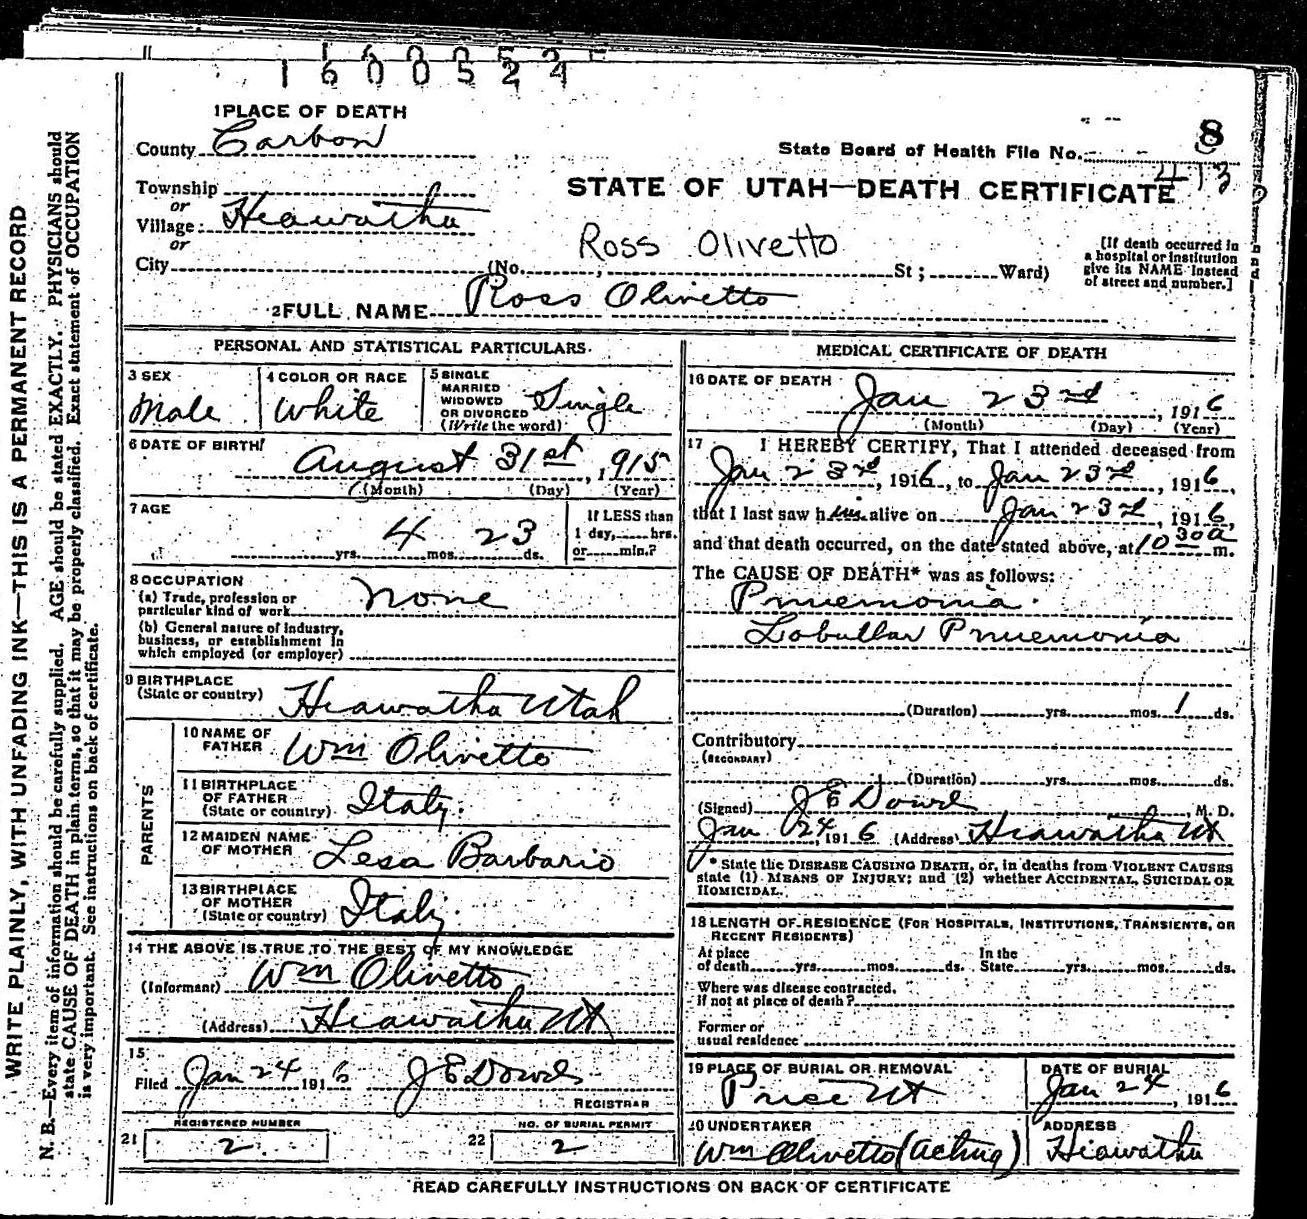 1600524
1 PLACE OF DEATH
County Carbon
State Board of Health File No. 8
413
Township
or
Village Hiawatha
or
City
STATE OF UTAH—DEATH CERTIFICATE
Ross Olivetto
(No. St; Ward)
[If death occurred in a hospital or institution give its NAME instead of street and number.]
2 FULL NAME Ross Olivetto
PERSONAL AND STATISTICAL PARTICULARS.
3 SEX Male
4 COLOR OR RACE White
5 SINGLE MARRIED WIDOWED OR DIVORCED (Write the word) Single
6 DATE OF BIRTH August 31st, 1915
(Month) (Day) (Year)
7 AGE yrs. 4 mos. 23 ds.
If LESS than 1 day, hrs. or min.?
8 OCCUPATION
(a) Trade, profession or particular kind of work None
(b) General nature of industry, business, or establishment in which employed (or employer)
9 BIRTHPLACE
(State or country) Hiawatha Utah
PARENTS
10 NAME OF FATHER Wm Olivetto
11 BIRTHPLACE OF FATHER (State or country) Italy.
12 MAIDEN NAME OF MOTHER Lesa Barbario
13 BIRTHPLACE OF MOTHER (State or country) Italy.
14 THE ABOVE IS TRUE TO THE BEST OF MY KNOWLEDGE
(Informant) Wm Olivetto
(Address) Hiawatha Ut
15
Filed Jan 24 1916 J E Dowd
REGISTRAR
REGISTERED NUMBER
21 2
NO. OF BURIAL PERMIT
22 2
MEDICAL CERTIFICATE OF DEATH
16 DATE OF DEATH
Jan 23rd, 1916
(Month) (Day) (Year)
17 I HEREBY CERTIFY, That I attended deceased from
Jan 23rd, 1916, to Jan 23rd, 1916,
that I last saw him alive on Jan 23rd, 1916,
and that death occurred, on the date stated above, at 10 30a m.
The CAUSE OF DEATH* was as follows:
Pnuemonia.
Lobullar Pnuemonia
(Duration) yrs. mos. 1 ds.
Contributory
(SECONDARY)
(Duration) yrs. mos. ds.
(Signed) J E Dowd, M. D.
Jan 24, 1916 (Address) Hiawatha Ut
* State the DISEASE CAUSING DEATH, or, in deaths from VIOLENT CAUSES
state (1) MEANS OF INJURY; and (2) whether ACCIDENTAL, SUICIDAL OR
HOMICIDAL.
18 LENGTH OF RESIDENCE (FOR HOSPITALS, INSTITUTIONS, TRANSIENTS, OR
RECENT RESIDENTS)
At place of death yrs. mos. ds. In the State yrs. mos. ds.
Where was disease contracted, if not at place of death?
Former or usual residence
19 PLACE OF BURIAL OR REMOVAL
Price Ut
DATE OF BURIAL
Jan 24, 1916
20 UNDERTAKER
Wm Olivetto (acting)
ADDRESS
Hiawatha
READ CAREFULLY INSTRUCTIONS ON BACK OF CERTIFICATE
WRITE PLAINLY, WITH UNFADING INK—THIS IS A PERMANENT RECORD
N. B.—Every item of information should be carefully supplied. AGE should be stated EXACTLY. PHYSICIANS should
state CAUSE OF DEATH in plain terms, so that it may be properly classified. Exact statement of OCCUPATION
is very important. See instructions on back of certificate.